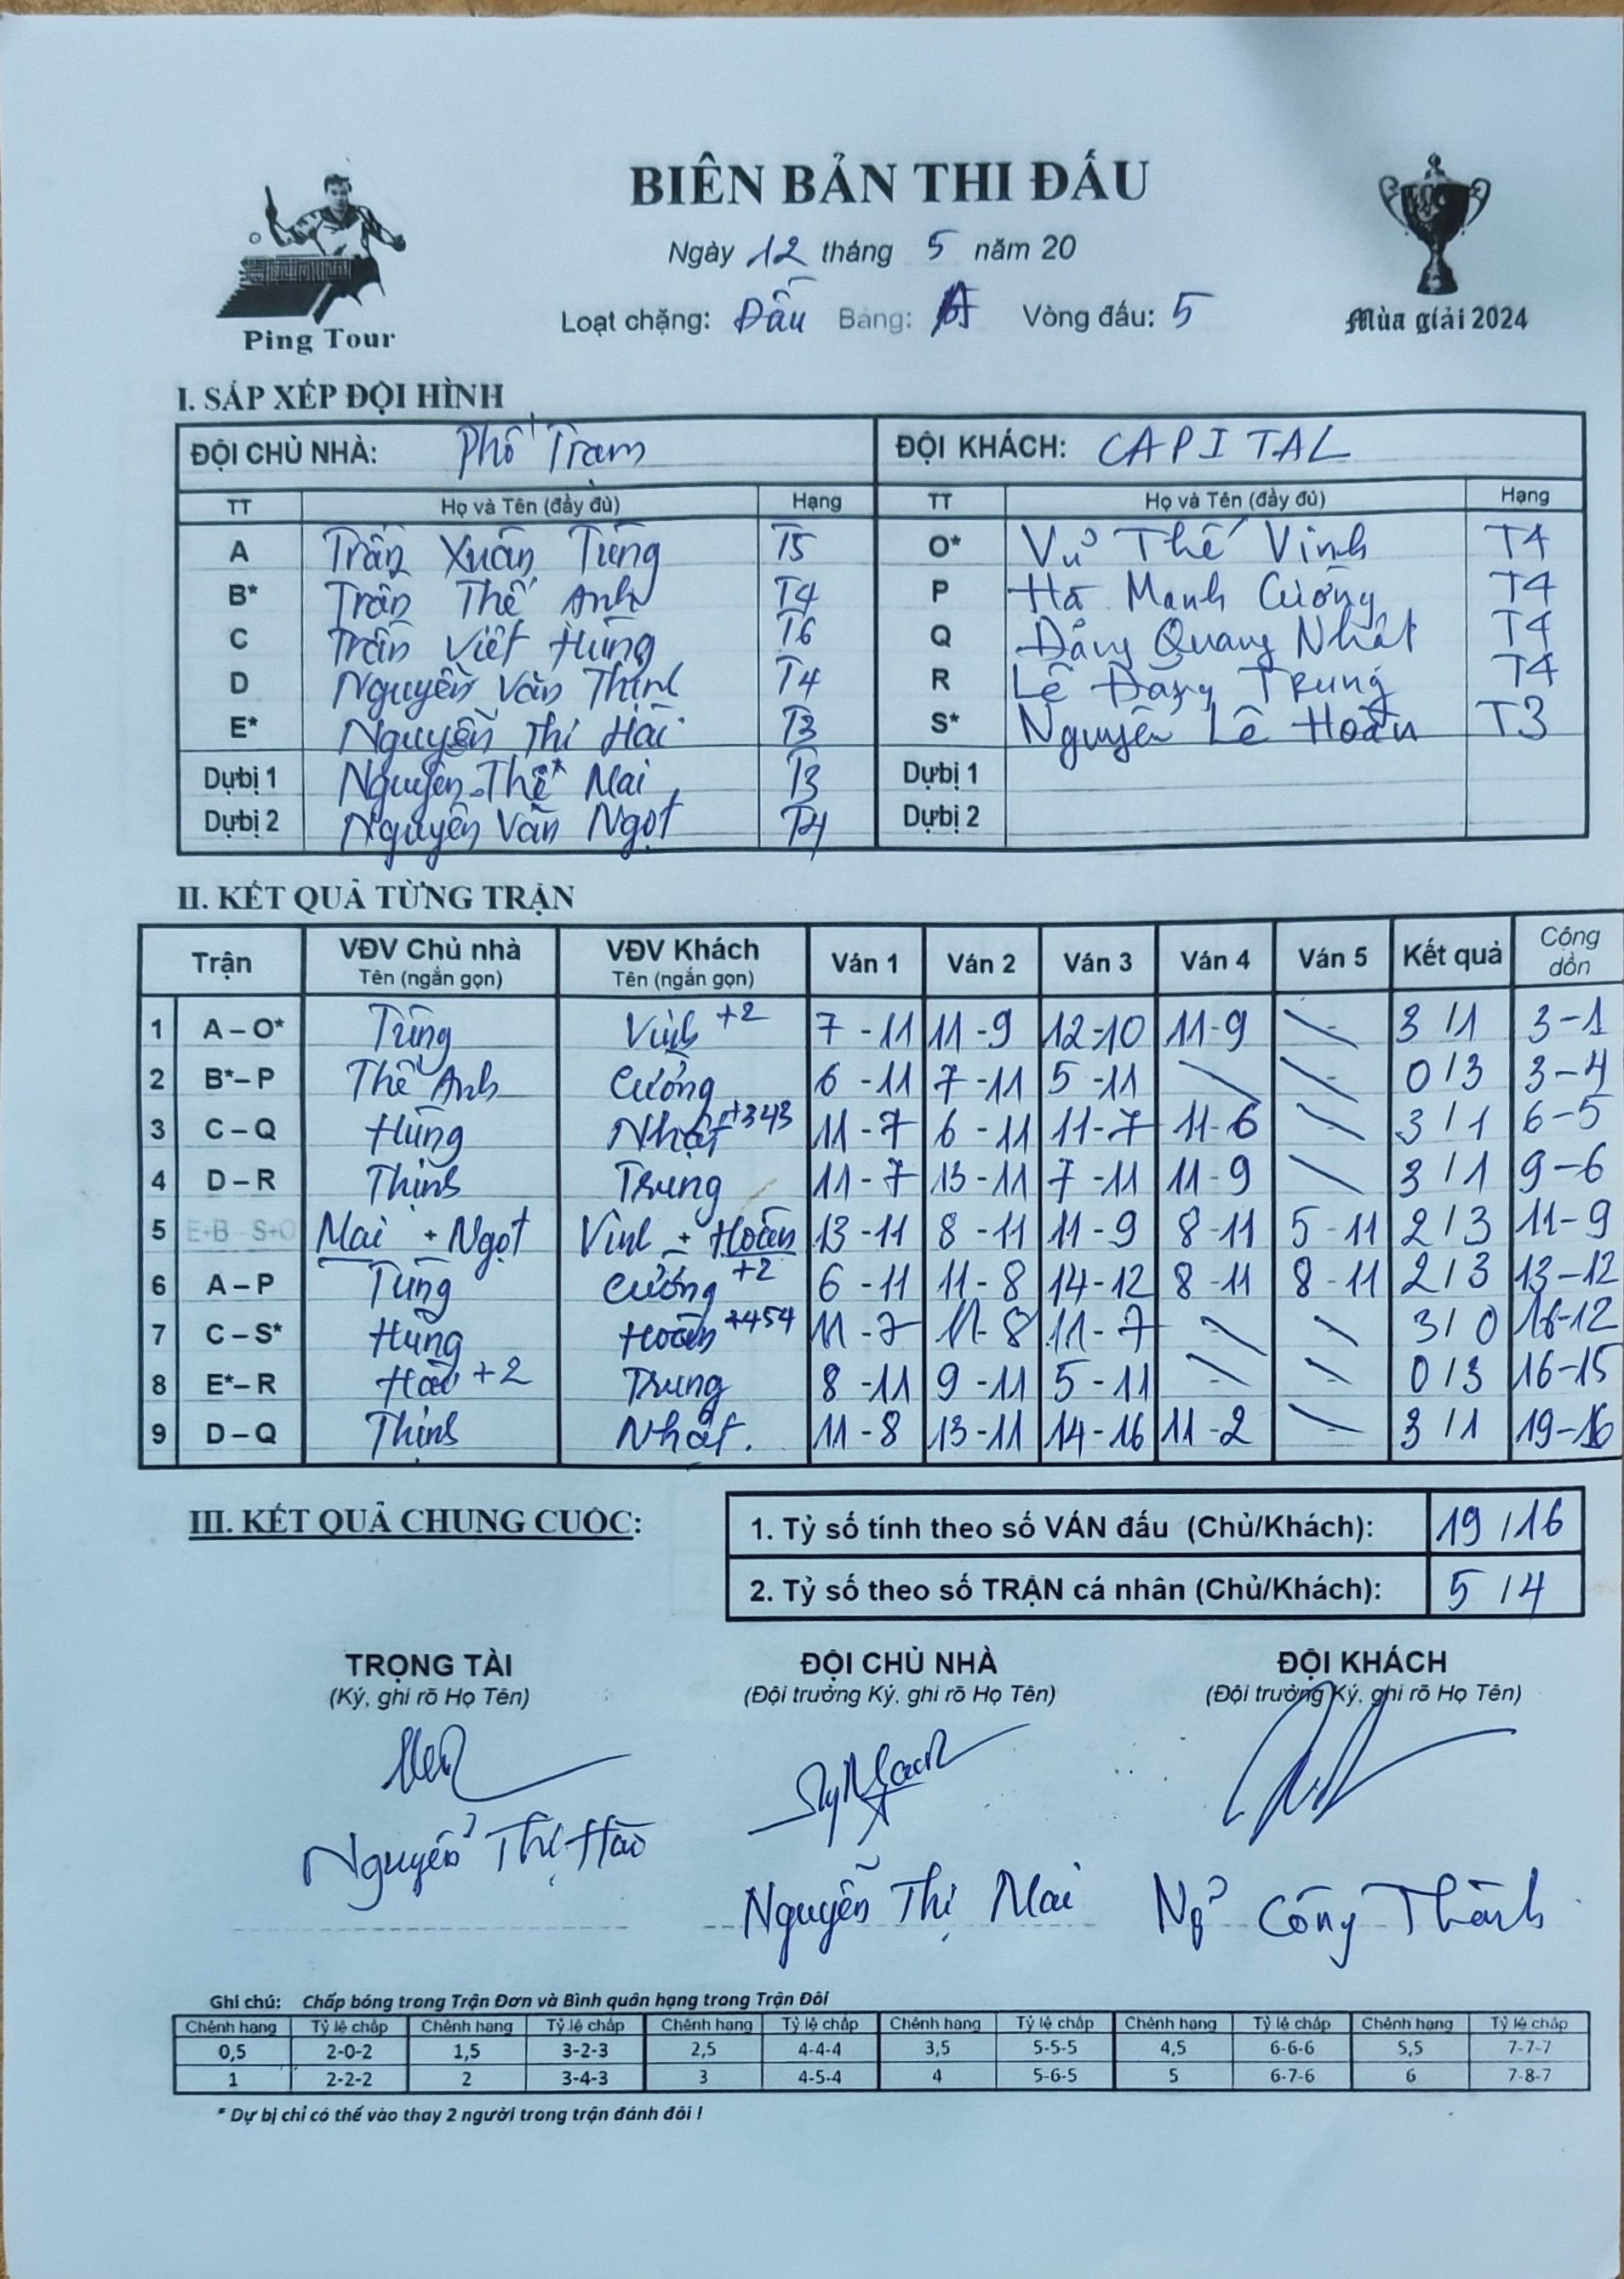 BIÊN BẢN THI ĐẤU
Ngày 12 tháng 5 năm 20
Loạt chặng: Đấu Bảng: A Vòng đấu: 5
Ping Tour
Mùa giải 2024
I. SẮP XẾP ĐỘI HÌNH
ĐỘI CHỦ NHÀ: Phố Trạm ĐỘI KHÁCH: CAPITAL
TT Họ và Tên (đầy đủ) Hạng TT Họ và Tên (đầy đủ) Hạng
A Trần Xuân Tùng T5 O* Vũ Thế Vinh T4
B* Trần Thế Anh T4 P Hà Mạnh Cường T4
C Trần Viết Hùng T6 Q Đặng Quang Nhật T4
D Nguyễn Văn Thịnh T4 R Lê Đăng Trung T4
E* Nguyễn Thi Hải T3 S* Nguyễn Lê Hoàn T3
Dự bị 1 Nguyễn Thị Mai T3 Dự bị 1
Dự bị 2 Nguyễn Văn Ngọt T4 Dự bị 2
II. KẾT QUẢ TỪNG TRẬN
Trận VĐV Chủ nhà Tên (ngắn gọn) VĐV Khách Tên (ngắn gọn) Ván 1 Ván 2 Ván 3 Ván 4 Ván 5 Kết quả Cộng dồn
1 A – O* Tùng Vinh +2 7 - 11 11 - 9 12 - 10 11 - 9 3 / 1 3 - 1
2 B* – P Thế Anh Cường 6 - 11 7 - 11 5 - 11 0 / 3 3 - 4
3 C – Q Hùng Nhật +343 11 - 7 6 - 11 11 - 7 11 - 6 3 / 1 6 - 5
4 D – R Thịnh Trung 11 - 7 13 - 11 7 - 11 11 - 9 3 / 1 9 - 6
5 E+B – S+O Mai + Ngọt Vinh + Hoàn 13 - 11 8 - 11 11 - 9 8 - 11 5 - 11 2 / 3 11 - 9
6 A – P Tùng Cường +2 6 - 11 11 - 8 14 - 12 8 - 11 8 - 11 2 / 3 13 - 12
7 C – S* Hùng Hoàn +454 11 - 7 11 - 8 11 - 7 3 / 0 16 - 12
8 E* – R Hảo +2 Trung 8 - 11 9 - 11 5 - 11 0 / 3 16 - 15
9 D – Q Thịnh Nhật. 11 - 8 13 - 11 14 - 16 11 - 2 3 / 1 19 - 16
III. KẾT QUẢ CHUNG CUỘC:
1. Tỷ số tính theo số VÁN đấu (Chủ/Khách): 19 / 16
2. Tỷ số theo số TRẬN cá nhân (Chủ/Khách): 5 / 4
TRỌNG TÀI ĐỘI CHỦ NHÀ ĐỘI KHÁCH
(Ký, ghi rõ Họ Tên) (Đội trưởng Ký, ghi rõ Họ Tên) (Đội trưởng Ký, ghi rõ Họ Tên)
Nguyễn Thị Hảo
Nguyễn Thị Mai Ngô Công Thành
Ghi chú: Chấp bóng trong Trận Đơn và Bình quân hạng trong Trận Đôi
Chênh hạng Tỷ lệ chấp Chênh hạng Tỷ lệ chấp Chênh hạng Tỷ lệ chấp Chênh hạng Tỷ lệ chấp Chênh hạng Tỷ lệ chấp Chênh hạng Tỷ lệ chấp
0,5 2-0-2 1,5 3-2-3 2,5 4-4-4 3,5 5-5-5 4,5 6-6-6 5,5 7-7-7
1 2-2-2 2 3-4-3 3 4-5-4 4 5-6-5 5 6-7-6 6 7-8-7
* Dự bị chỉ có thể vào thay 2 người trong trận đánh đôi !